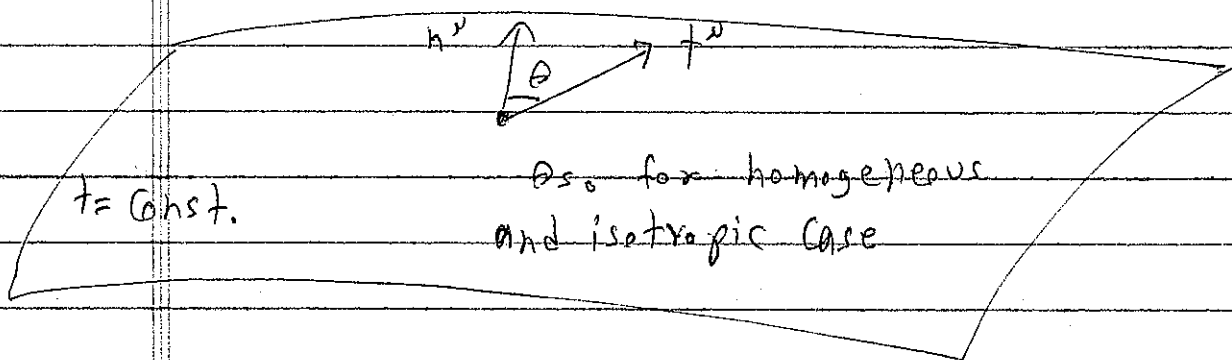 n^μ θ t^μ
t = Const.
θ=0 for homogeneous
and isotropic Case